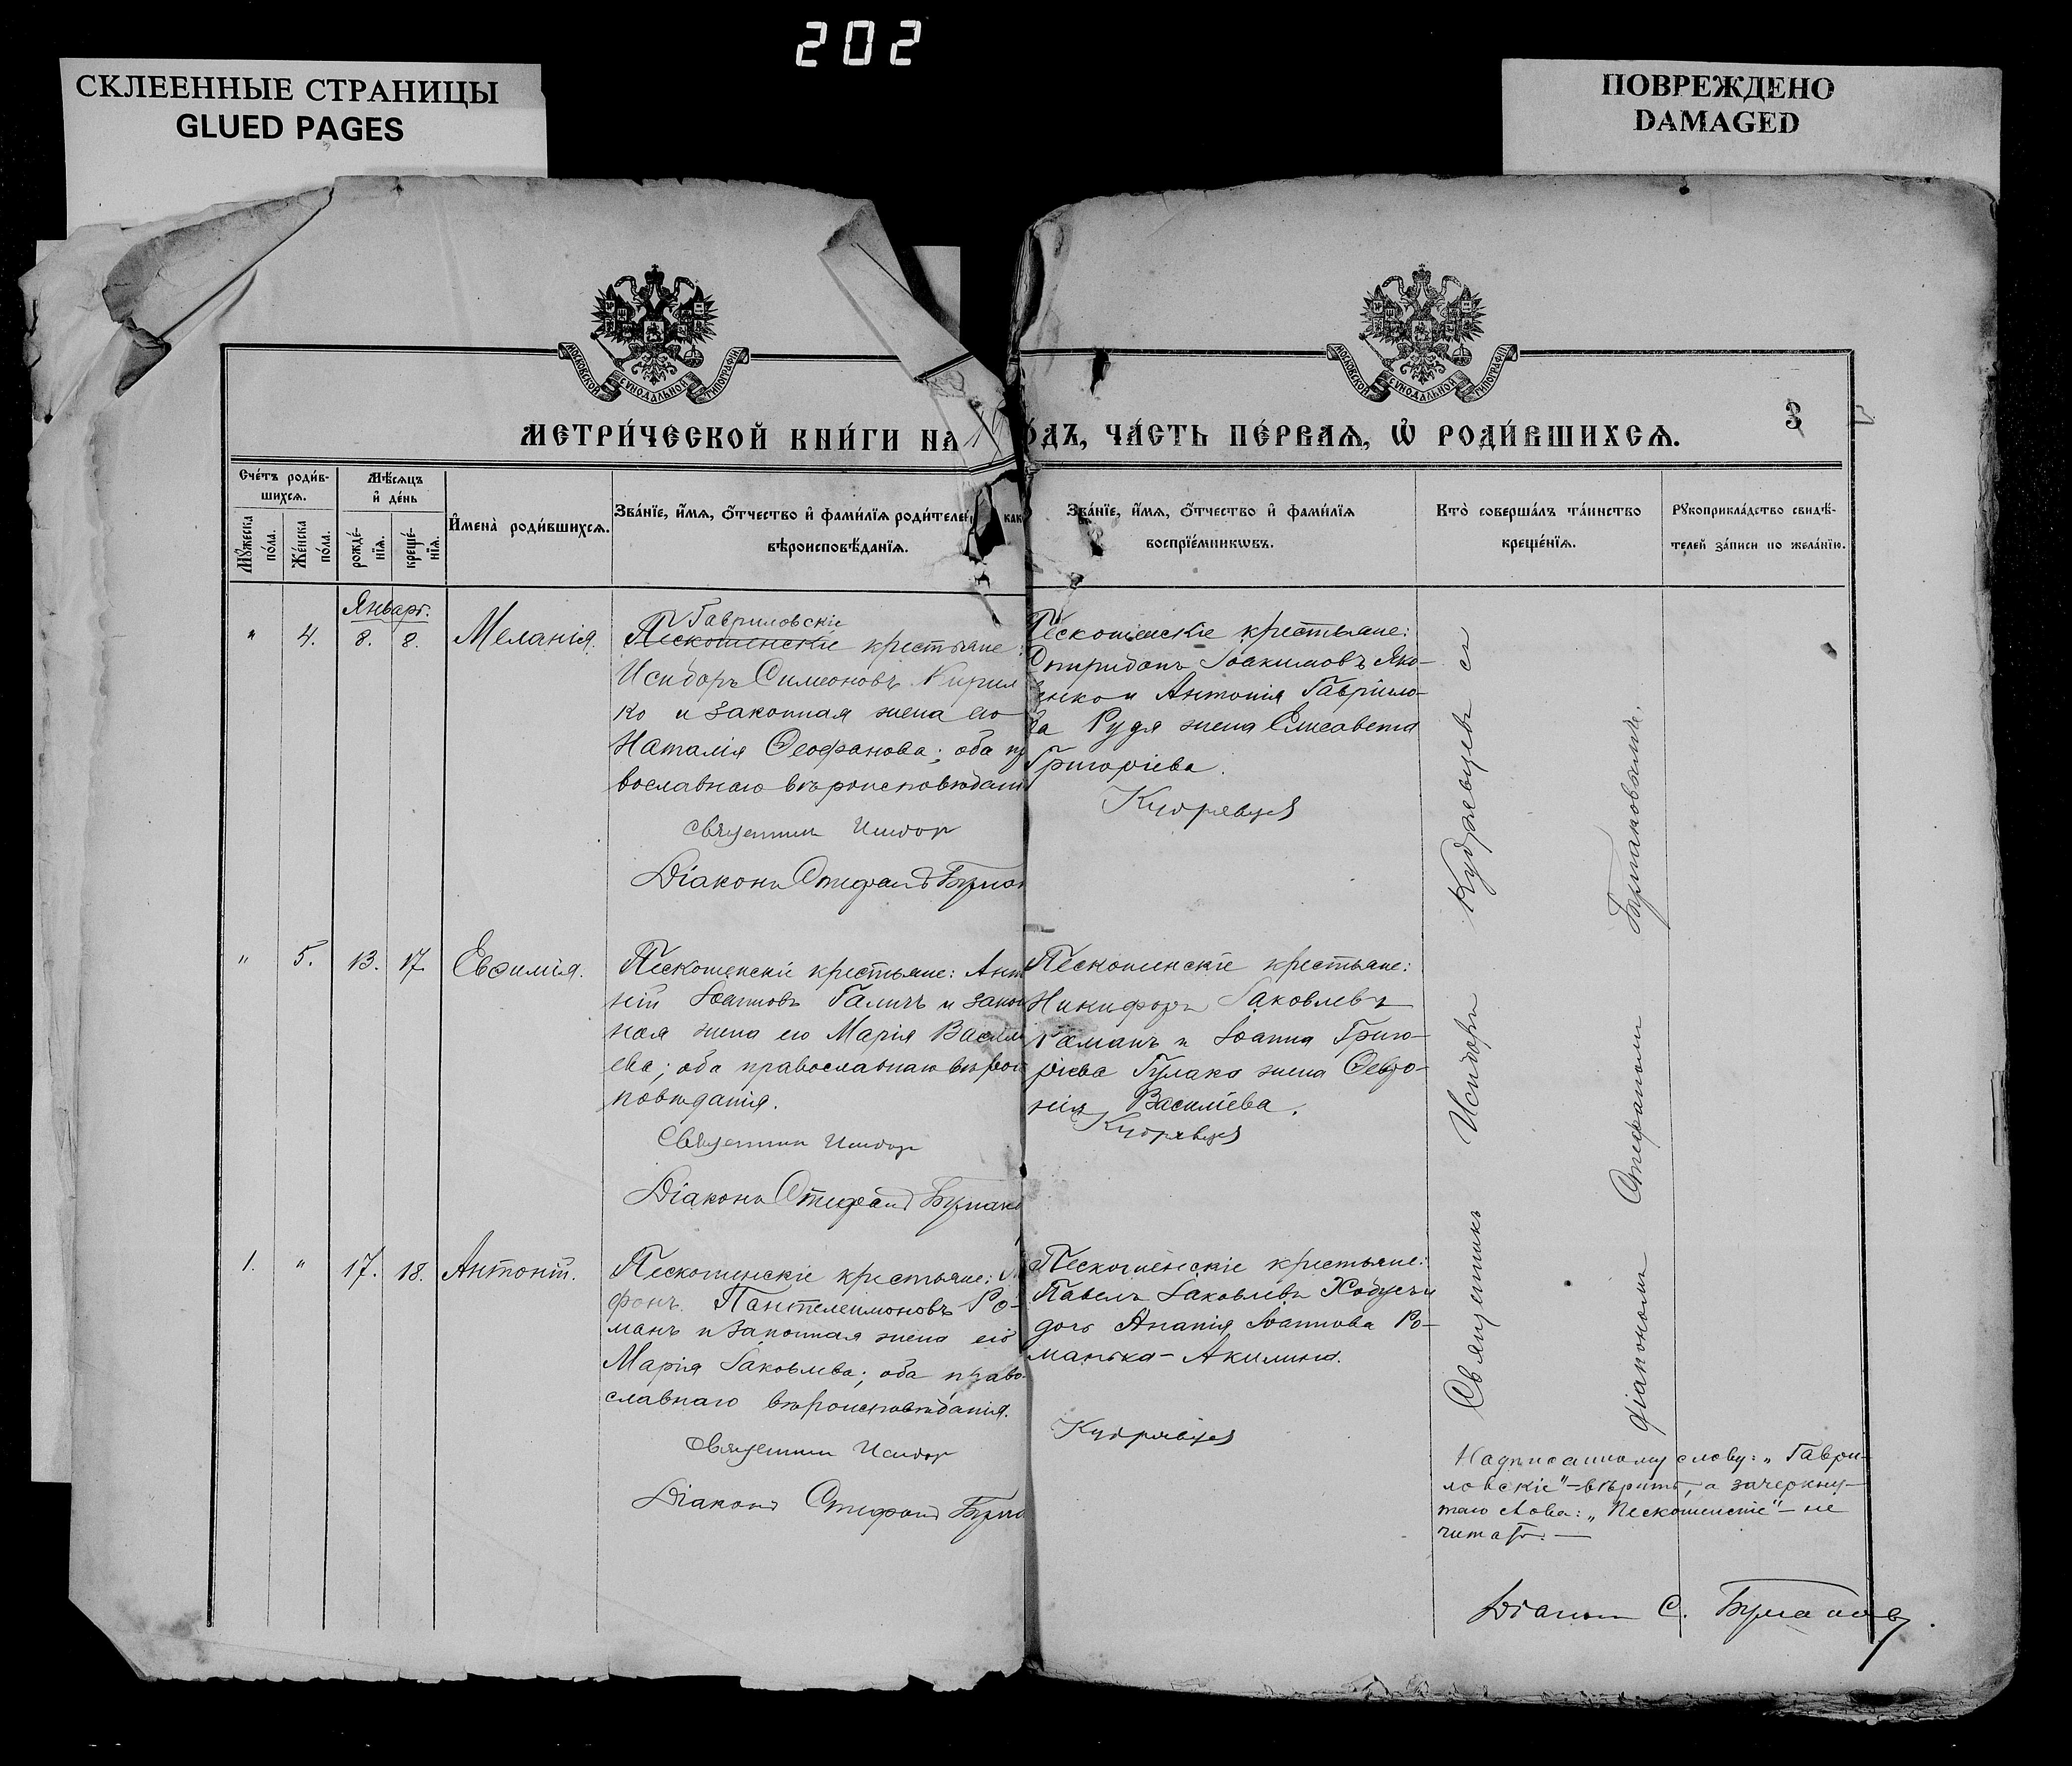 202
СКЛЕЕННЫЕ СТРАНИЦЫ
GLUED PAGES
ПОВРЕЖДЕНО
DAMAGED
МОСКОВСКОЙ СѴНОДАЛЬНОЙ ТИПОГРАФІИ
МОСКОВСКОЙ СѴНОДАЛЬНОЙ ТИПОГРАФІИ
3
МЕТРИ́ЧЕСКОЙ КНИ́ГИ НА
О́ДЪ, ЧА́СТЬ ПЕ́РВАЯ, Ѡ҆ РОДИ́ВШИХСЯ.
Сче́тъ роди́в-
шихся.
Мꙋ́жеска
по́ла.
Же́нска
по́ла.
Мѣ́сяцъ
и҆ де́нь
рожде́-
нїя.
креще́-
нїя.
И҆мена̀ роди́вшихся.
Зва́нїе, и҆́мя, ѻ҆́тчество и҆ фами́лїя роди́телей, как
вѣроисповѣ́данїя.
Зва́нїе, и҆́мя, ѻ҆́тчество и҆ фами́лїя
воспрїе́мникѡвъ.
Кто̀ соверша́лъ та́инство
креще́нїя.
Рꙋкоприкла́дство свидѣ́-
телей за́писи по жела́нїю.
Январь.
" 4. 8. 8. Меланія.
Гавриловскіе
Пескошенскіе крестьяне:
Исидоръ Симеоновъ Кирил
ко и законная жена его
Наталія Ѳеофанова; оба пр
вославнаго вѣроисповѣдані
Священник Исидор
Діаконъ Стефанъ Бурма
Пескошенскіе крестьяне:
Спиридонъ Іоакимовъ Яко-
енко и Антонія Гаврило-
ва Рудя жена Елисавета
Григоріева.
Кудрявцев
" 5. 13. 17. Евѳимія.
Пескошенскіе крестьяне: Анто
ній Іоанновъ Галичъ и закон
ная жена его Марія Василь
ева; оба православнаго вѣрои
повѣданія.
Священник Исидор
Діаконъ Стефанъ Бурмак
Пескошенскіе крестьяне:
Никифоръ Іаковлевъ
Романъ и Іоанна Григо-
ріева Гулака жена Ѳевро-
нія Васильева.
Кудрявцев
1. " 17. 18. Антоній.
Пескошенскіе крестьяне:
фонъ Пантелеимоновъ Ро-
манъ и законная жена его
Марія Іаковлева; оба право-
славнаго вѣроисповѣданія.
Священник Исидор
Діаконъ Стефанъ Бурма
Пескошенскіе крестьяне:
Павелъ Іаковлевъ и
дочь Ананія Іоаннова Ро-
манька - Акилина.
Кудрявцев
Священникъ Исидоръ Кудрявцевъ съ
діакономъ Стефаномъ
Надписанному слову: „Гаври-
ловскіе" - вѣрить, а зачеркну-
таго слова: „Пескошенскіе" - не
читать. —
Діаконъ С.